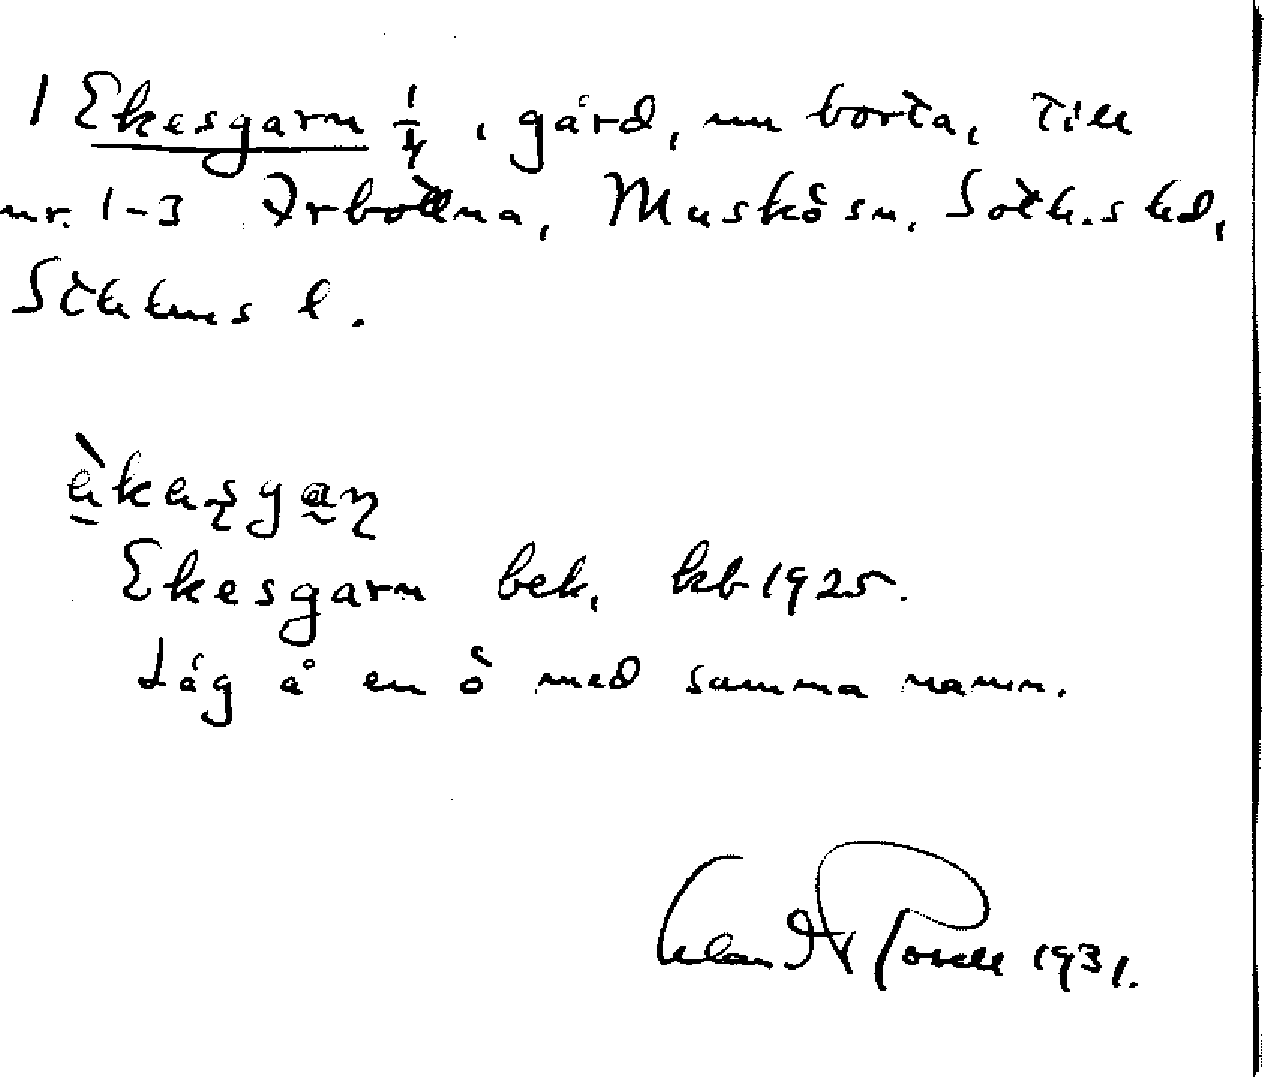 1 Ekesgarn 1/4, gård, nu borta, till
nr. 1-3 Arbottna, Muskö sn, Soth.s hd,
Sthlms l.
èkasgaṇ
Ekesgarn bek, kb 1925.
Låg å en ö med samma namn.
1931.